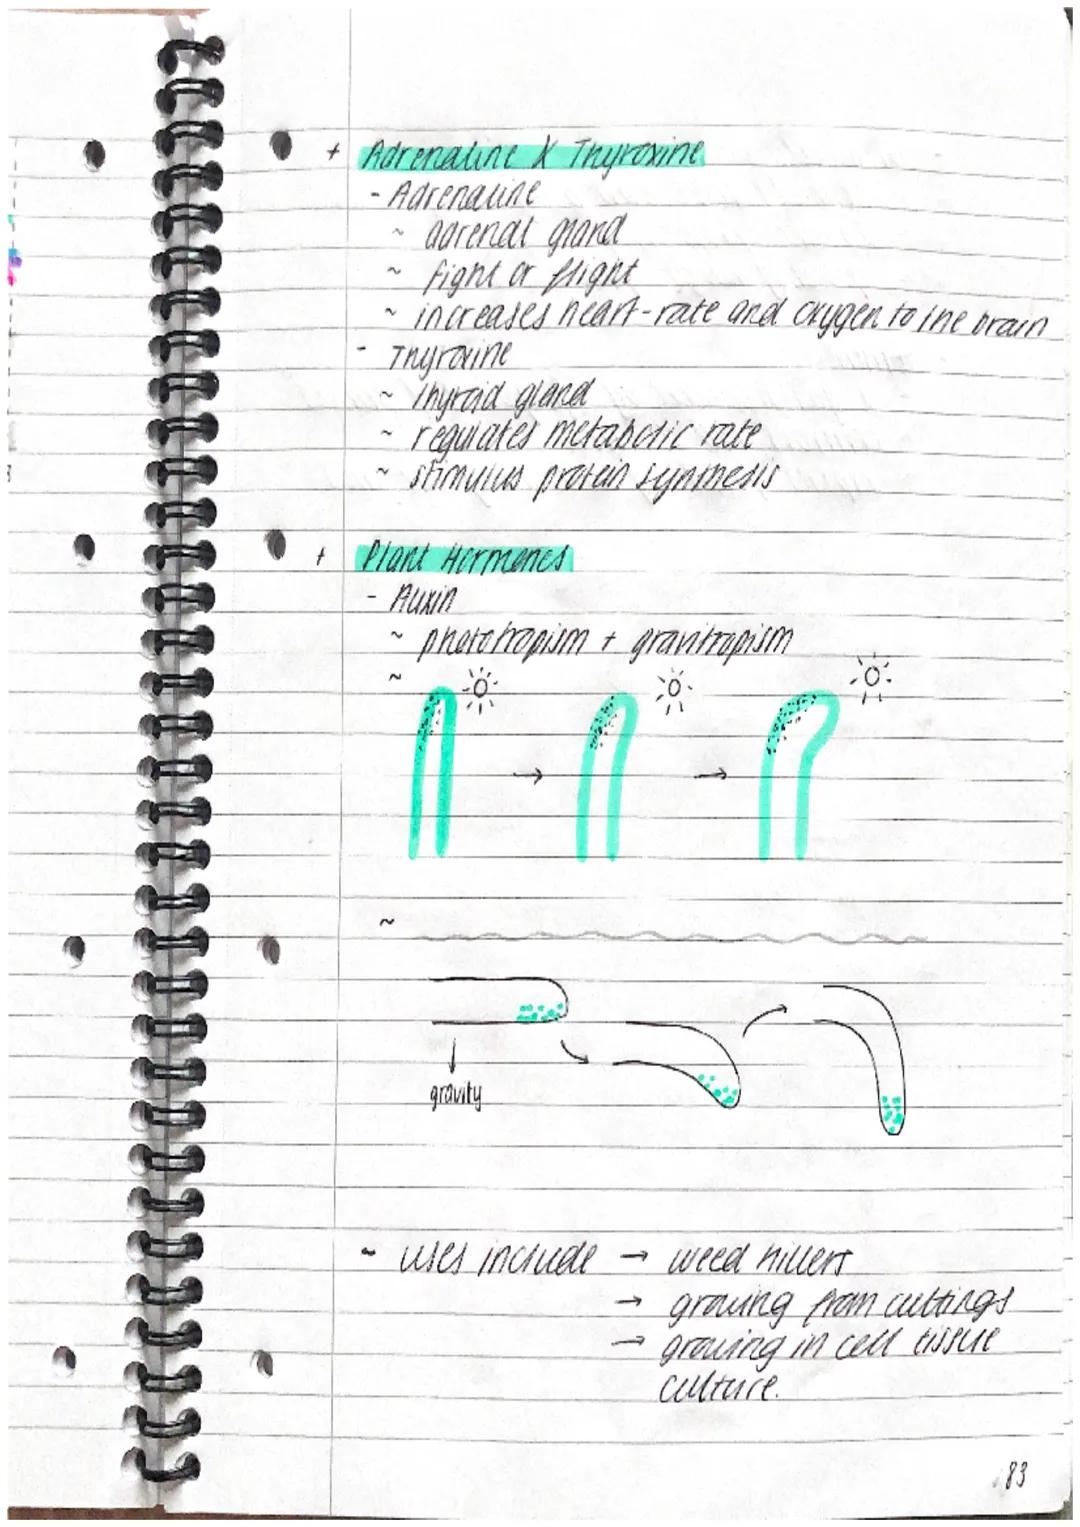 + Adrenaline & Thyroxine
- Adrenaline
~ adrenal gland
~ fight or flight
~ increases heart-rate and oxygen to the brain
- Thyroxine
~ thyroid gland
~ regulates metabolic rate
~ stimulus protein synthesis
+ Plant Hormones
- Auxin
~ phototropism + gravitropism
~
~
gravity
~ uses include → weed killers
→ growing from cuttings
→ growing in cell tissue
culture.
83